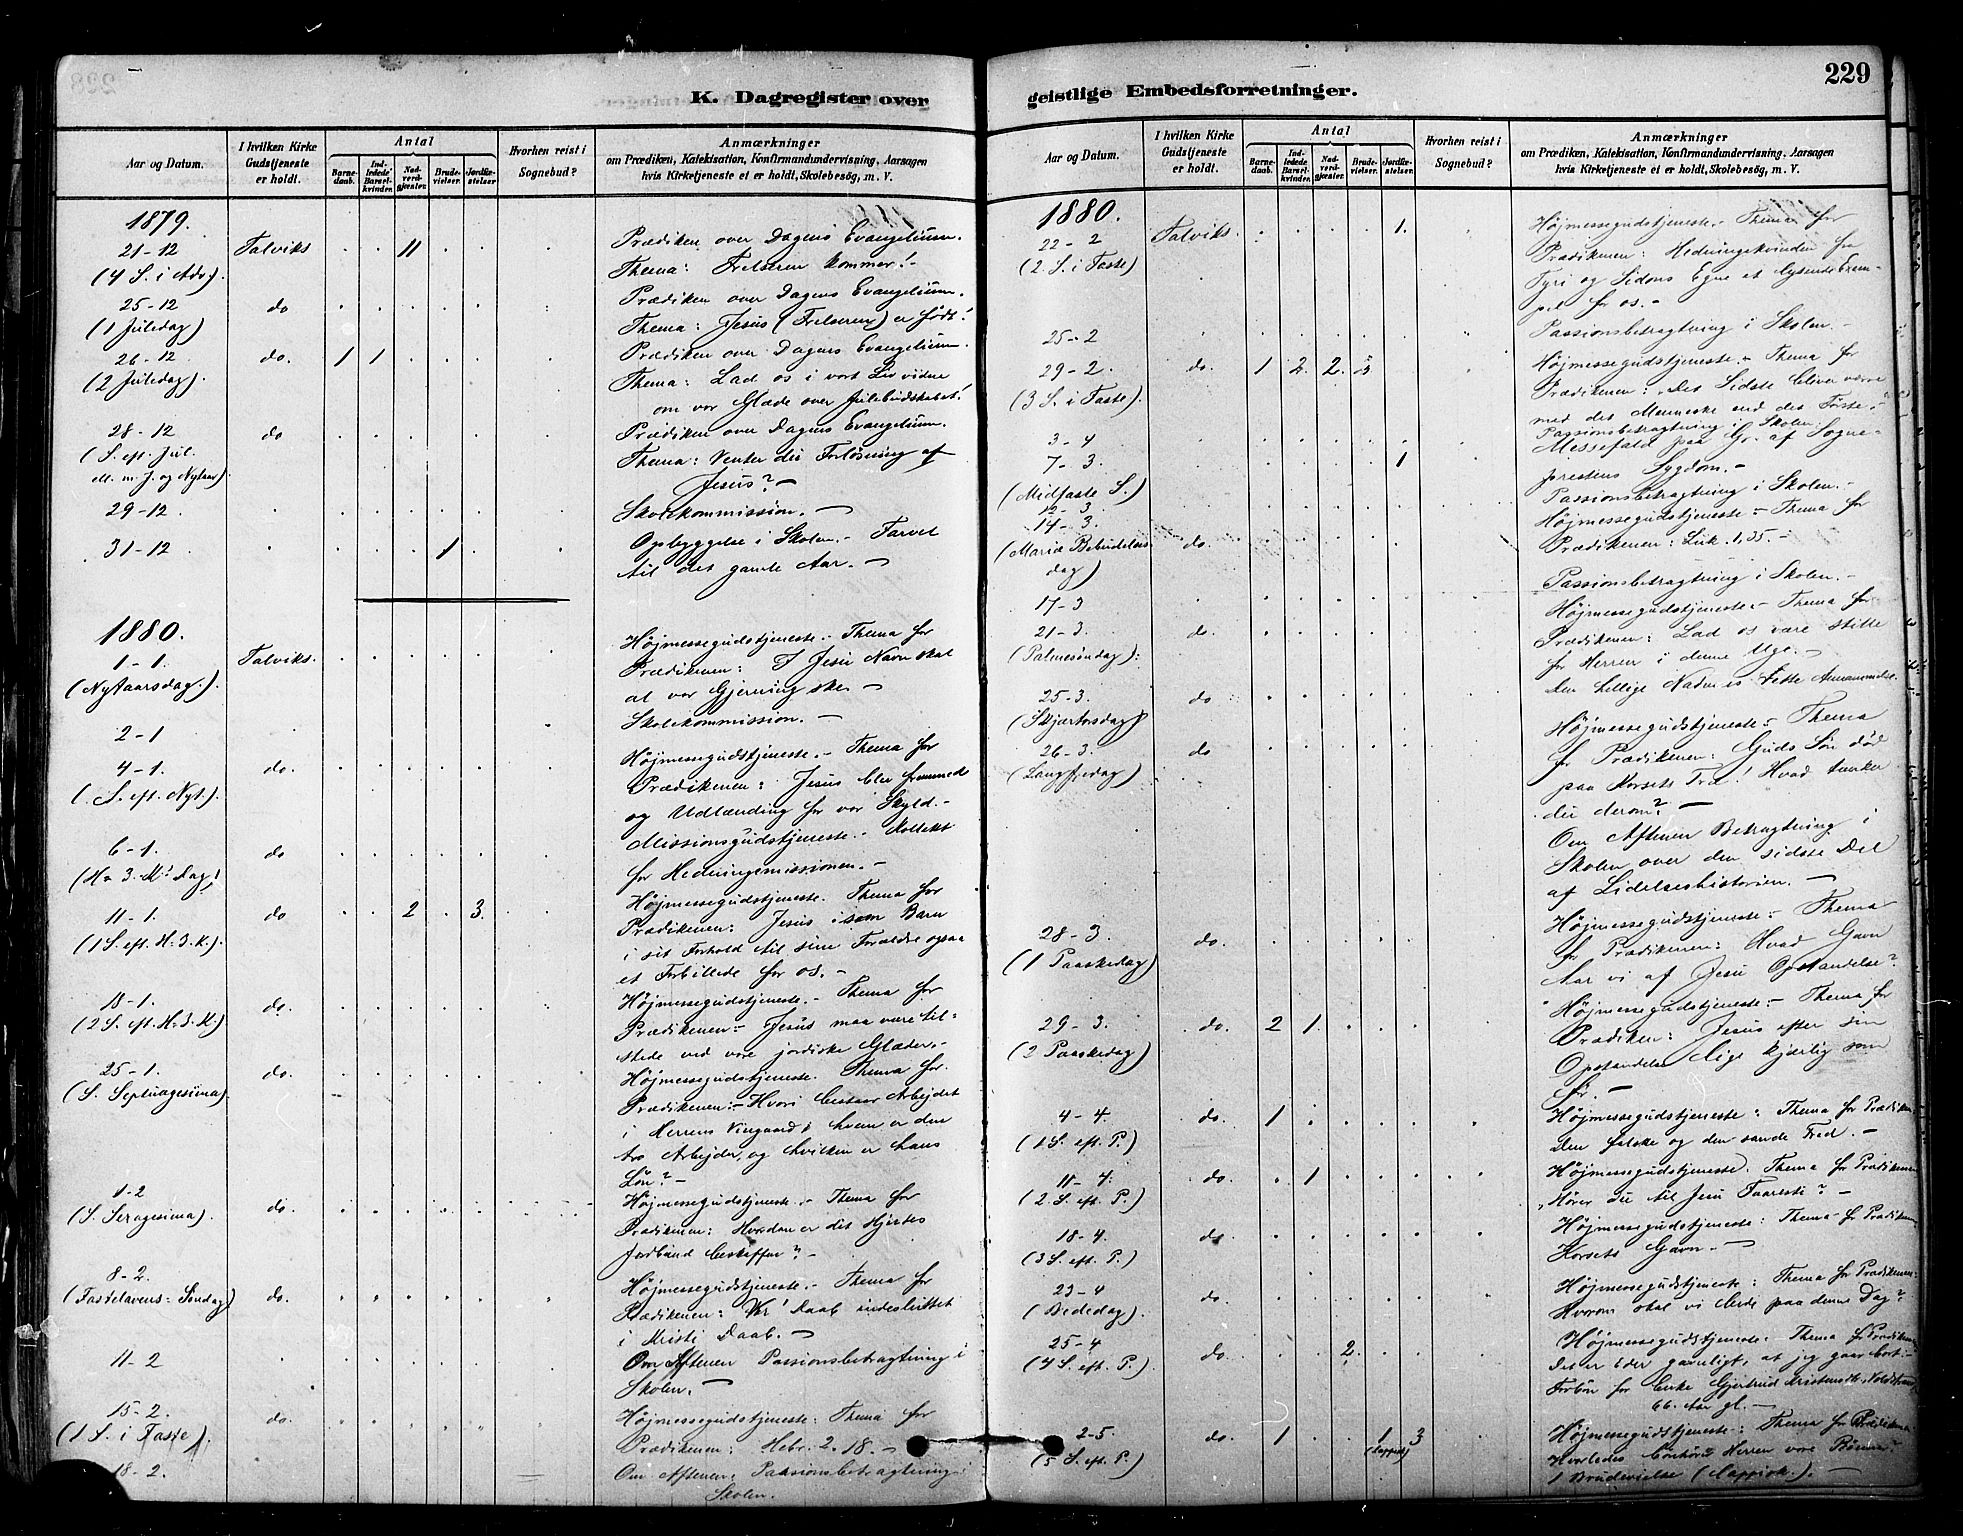 K. Dagregister over
Aar og Datum.
I hvilken Kirke
Gudstjeneste
er holdt.
Antal
Barne-
daab.
Ind-
ledede
Barsel-
kvinder.
Nad-
verd-
gjæster.
Brude-
vielser.
Jordfæ-
stelser.
Hvorhen reist i
Sognebud?
Anmærkninger
om Prædiken, Katekisation, Konfirmandundervisning, Aarsagen
hvis Kirketjeneste ei er holdt, Skolebesøg, m. V.
1879.
21-12 Talviks 11 Prædiken over Dagens Evangelium.
(4 S. i Adv). Thema: Frelseren kommer! -
25-12 do Prædiken over Dagens Evangelium.
(1 Juledag) Thema: Jesus (Frelseren) er født!
26-12 do. 1 1 Prædiken over Dagens Evangelium.
(2 Juledag). Thema: Lad os i vort Liv vidne
om vor Glæde over Julebudskabet!
28-12 do Prædiken over Dagens Evangelium.
(S. eft. Jul. Thema: Venter du Forløsning af
m. J. og Nytaar). Jesus? -
29-12. Skolekommission. -
31-12 1 Opbyggelse i Skolen. - Farvel
til det gamle Aar. -
1880.
1-1. Talviks. Højmessegudstjeneste. - Thema for
(Nytaarsdag.). Prædikenen: I Jesu Navn skal
al vor Gjerning ske -
2-1 Skolekommission. -
4-1. do. Højmessegudstjeneste. - Thema for
(S. eft. Nyt.). Prædikenen: Jesus blev fremmed
og Udlænding for vor Skyld. -
6-1. do Missionsgudstjeneste. - Kollekt
(H. 3. K. Dag) for Hedningemissionen. -
11-1. do 2 3. Højmessegudstjeneste. Thema for
(1 S. eft. H. 3. K.). Prædikenen: Jesus som Barn
i sit Forhold til sine Forældre ogsaa
et Forbillede for os. -
18-1. do. Højmessegudstjeneste. - Thema for
(2 S. eft. H. 3. K.) Prædikenen: - Jesus maa være til-
stede ved vore jordiske Glæder. -
25-1. do. Højmessegudstjeneste. Thema for
(S. Septuagesima) Prædikenen: - Hvori bestaar Arbejdet
i Herrens Vingaard, hvem er den
tro Arbejder, og hvilken er hans
Løn? -
1-2 do. Højmessegudstjeneste. - Thema for
(S. Sexagesima). Prædikenen: Hvordan er dit Hjertes
Jordbund beskaffen? -
8-2. do. Højmessegudstjeneste. - Thema for
(Fastelavens-Søndag) Prædikenen: Vor Daab indesluttet
i Kristi Daab. -
11-2 Om Aftenen Passionsbetragtning i
Skolen. -
15-2. do. Højmessegudstjeneste: Thema for
(1 S. i Faste). Prædikenen: Hebr. 2. 18. -
18-2. Om Aftenen: Passionsbetragtning i
Skolen.
geistlige Embedsforretninger.
229
Aar og Datum.
I hvilken Kirke
Gudstjeneste
er holdt.
Antal
Barne-
daab.
Ind-
ledede
Barsel-
kvinder.
Nad-
verd-
gjæster.
Brude-
vielser.
Jordfæ-
stelser.
Hvorhen reist i
Sognebud?
Anmærkninger
om Prædiken, Katekisation, Konfirmandundervisning, Aarsagen
hvis Kirketjeneste ei er holdt, Skolebesøg, m. V.
1880.
22-2 Talviks. 1. Højmessegudstjeneste. Thema for
(2 S. i Faste) Prædikenen: Hedningekvinden fra
Tyri og Sidons Egne et lysende Exem-
pel for os. -
25-2 Passionsbetragtning i Skolen. -
29-2. do. 1 2. 2. Højmessegudstjeneste. - Thema for
(3 S. i Faste). Prædikenen: Det Sidste bliver værre
med det Menneske end det Første. -
3-4 Passionsbetragtning i Skolen.
7-3. 1 Messefald paa Gr. af Sogne-
(Midfaste S.) præstens Sygdom. -
12-3. Passionsbetragtning i Skolen. -
14-3. do. Højmessegudstjeneste - Thema for
(Mariæ Bebudelses Prædikenen: Luk. 1, 35. -
dag)
17-3 Passionsbetragtning i Skolen. -
21-3. do. Højmessegudstjeneste - Thema for
(Palmesøndag): Prædikenen: Lad os være stille
for Herren i denne Uge. -
25-3. do Den hellige Nadveres rette Annammelse.
(Skjærtorsdag)
26-3. do Højmessegudstjeneste: Thema
(Langfredag) for Prædikenen: Guds Søn død
paa Korsets Træ! Hvad tænker
du derom? -
Om Aftenen Betragtning i
Skolen over den sidste Del
af Lidelseshistorien. -
28-3. do. Højmessegudstjeneste: Thema
(1 Paaskedag) for Prædikenen: Hvad Gavn
har vi af Jesu Opstandelse?
29-3. do. 2 1. Højmessegudstjeneste: - Thema for
(2 Paaskedag) Prædiken: Jesus efter sin
Opstandelse lige kjærlig som
før. -
4-4 do. 1 Højmessegudstjeneste: Thema for Prædiken
(1 S. eft. P.) Den falske og den sande Fred. -
11-4. do. 1 Højmessegudstjeneste. Thema for Prædikenen
(2 S. eft. P.) Hører du til Jesu Faaresti? -
18-4. do Højmessegudstjeneste: Thema for Prædiken
(3 S. eft. P.) Korsets Gavn. -
23-4 do. Højmessegudstjeneste: Thema for Prædikenen
(Bededag) Hvorom skal vi bede paa denne Dag?
25-4 do. 2. Højmessegudstjeneste: Thema for Prædiken
(4 S. eft. P.). Det er Eder gavnligt, at jeg gaar bort. -
Forbøn for Enke Gjertrud
66. Aar gl. -
2-5 do. 1 1 3 Højmessegudstjeneste: Thema for Prædikenen
(5 S. eft. P.) (lappisk) Hvorledes bønhører Herren vore Bønner?
1 Brudevielse (Lappisk.). -